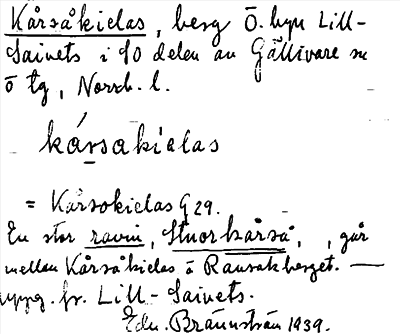 Kårsåkielas, berg Ö. byn Lill-
Saivets i SO delen av Gällivare sn
ö tg, Norrb. l.
kársakielas
= Kårsokielas G 29.
En stor ravin, Stuorkårså, går
mellan Kårsåkielas å Rausakberget. —
uppg. fr. Lill-Saivets.
Edv. Brännström 1939.